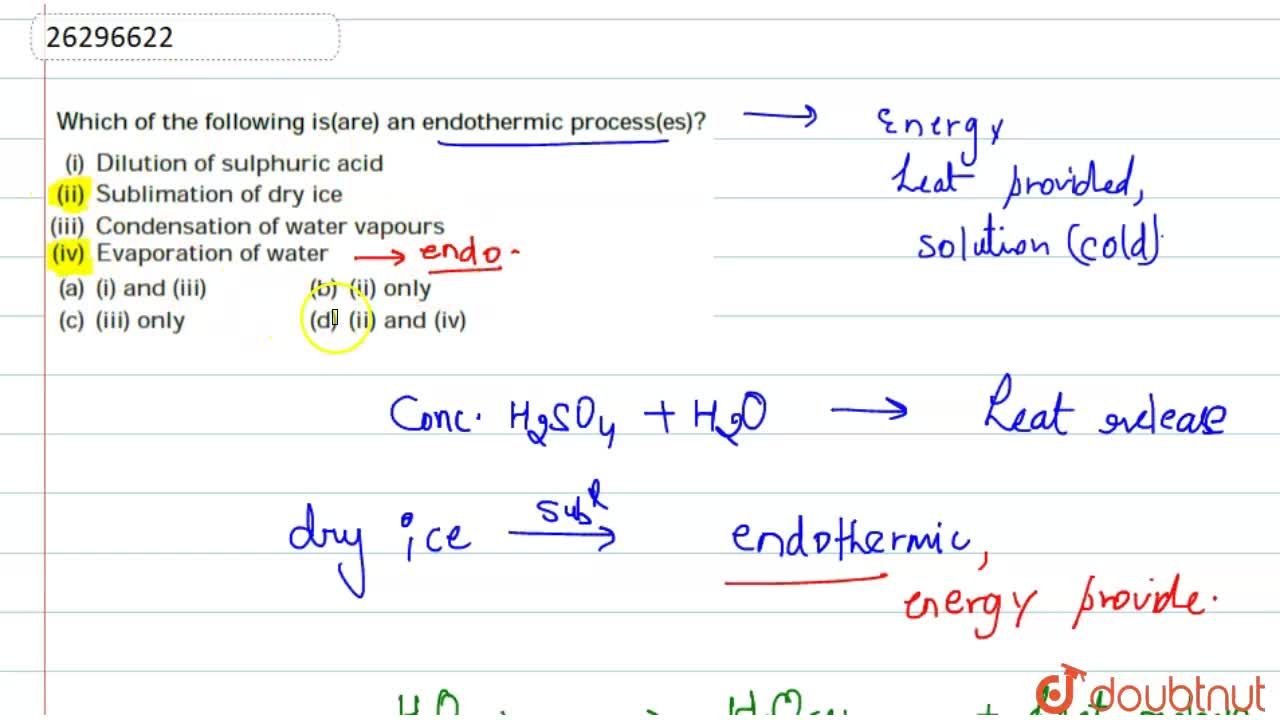 26296622
Which of the following is(are) an endothermic process(es)? → Energy
(i) Dilution of sulphuric acid
heat provided,
(ii) Sublimation of dry ice
(iii) Condensation of water vapours
solution (cold).
(iv) Evaporation of water → endo.
(a) (i) and (iii) (b) (ii) only
(c) (iii) only (d) (ii) and (iv)
Conc. H₂SO₄ + H₂O → Heat release
dry ice → endothermic,
energy provide.
doubtnut